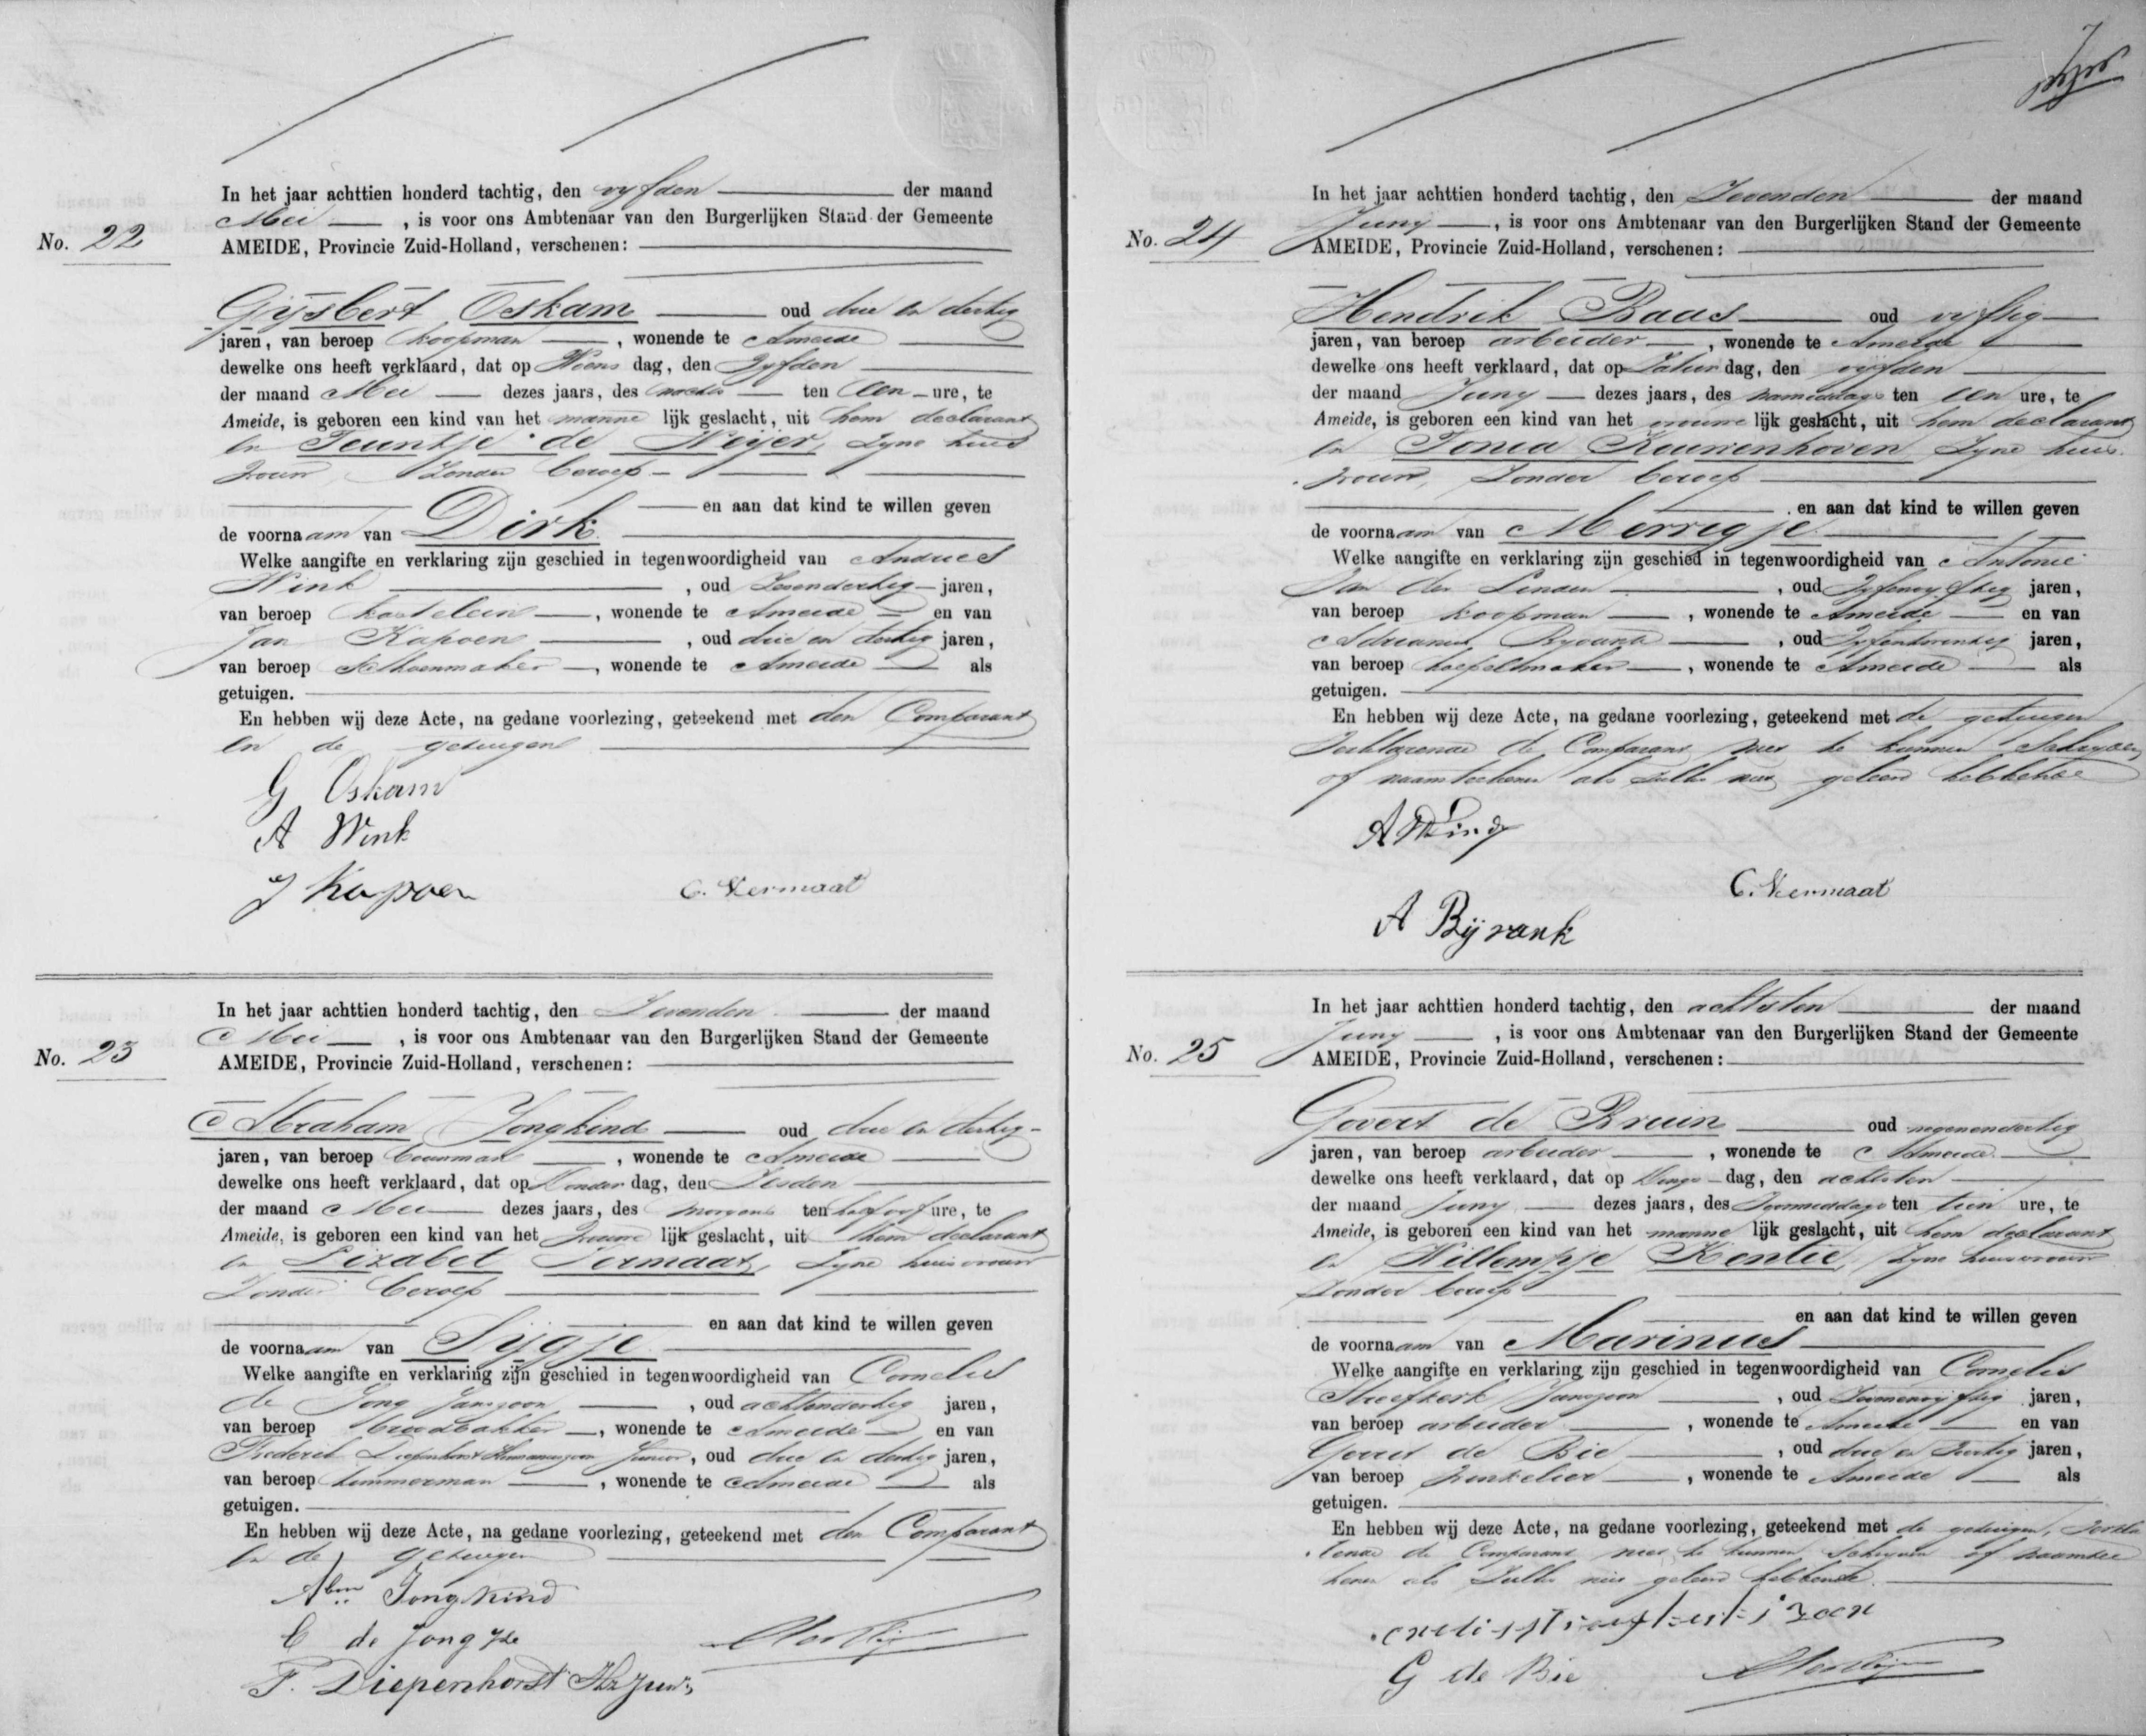 In het jaar achttien honderd tachtig, den vyfden der maand
Mei, is voor ons Ambtenaar van den Burgerlijken Stand der Gemeente
No. 22
AMEIDE, Provincie Zuid-Holland, verschenen:
Gijsbert Oskam oud drie en dertig
jaren, van beroep koopman, wonende te Ameide
dewelke ons heeft verklaard, dat op Woens dag, den vyfden
der maand Mei dezes jaars, des ten een ure, te
Ameide, is geboren een kind van het manne lijk geslacht, uit hem declarant
en Teuntje de Weijer, zyne huis
vrouw, zonder beroep
en aan dat kind te willen geven
de voornaam van Dirk
Welke aangifte en verklaring zijn geschied in tegenwoordigheid van Andries
Wink, oud zevendertig jaren,
van beroep kastelein, wonende te Ameide en van
Jan Kapoen, oud drie en dertig jaren,
van beroep Schoenmaker, wonende te Ameide als
getuigen.
En hebben wij deze Acte, na gedane voorlezing, geteekend met den Comparant
en de getuigen
G Oskam
A Wink
J Kapoen C. Vermaat
In het jaar achttien honderd tachtig, den Zevenden der maand
Mei, is voor ons Ambtenaar van den Burgerlijken Stand der Gemeente
No. 23
AMEIDE, Provincie Zuid-Holland, verschenen:
Abraham Jongkind oud drie en dertig
jaren, van beroep bouwman, wonende te Ameide
dewelke ons heeft verklaard, dat op Donder dag, den Zesden
der maand Mei dezes jaars, des morgens ten half vyf ure, te
Ameide, is geboren een kind van het vrouwe lijk geslacht, uit hem declarant
en Lizabet Termaat, zyne huisvrouw
zonder beroep
en aan dat kind te willen geven
de voornaam van Sijgje
Welke aangifte en verklaring zijn geschied in tegenwoordigheid van Cornelis
de Jong Janszoon, oud achtendertig jaren,
van beroep broodbakker, wonende te Ameide en van
Frederik Diepenhorst Hermanuszoon Junior, oud drie en dertig jaren,
van beroep timmerman, wonende te Ameide als
getuigen.
En hebben wij deze Acte, na gedane voorlezing, geteekend met den Comparant
en de getuigen
Abm Jongkind
C de Jong Jz
F. Diepenhorst Hz Junr
In het jaar achttien honderd tachtig, den Zevenden der maand
Juny, is voor ons Ambtenaar van den Burgerlijken Stand der Gemeente
No. 24
AMEIDE, Provincie Zuid-Holland, verschenen:
Hendrik Baas oud vyftig
jaren, van beroep arbeider, wonende te Ameide
dewelke ons heeft verklaard, dat op Zatur dag, den vyfden
der maand Juny dezes jaars, des namiddags ten een ure, te
Ameide, is geboren een kind van het vrouwe lijk geslacht, uit hem declarant
en Tonia Kuurenhoven zyne huis
vrouw, zonder beroep
en aan dat kind te willen geven
de voornaam van Merrigje
Welke aangifte en verklaring zijn geschied in tegenwoordigheid van Antonie
van der Linden, oud vyfenvyftig jaren,
van beroep koopman, wonende te Ameide en van
Adrianus Byvank, oud vyfentwintig jaren,
van beroep hoepelmaker, wonende te Ameide als
getuigen.
En hebben wij deze Acte, na gedane voorlezing, geteekend met de getuigen
verklarende de Comparant niet te kunnen Schryven
of naamteekenen als zulks niet geleerd hebbende
C. Vermaat
A Bijvank
In het jaar achttien honderd tachtig, den achtsten der maand
Juny, is voor ons Ambtenaar van den Burgerlijken Stand der Gemeente
No. 25
AMEIDE, Provincie Zuid-Holland, verschenen:
Govert de Bruin oud negenendertig
jaren, van beroep arbeider, wonende te Ameide
dewelke ons heeft verklaard, dat op Dings dag, den achtsten
der maand Juny dezes jaars, des voormiddags ten tien ure, te
Ameide, is geboren een kind van het manne lijk geslacht, uit hem declarant
en Willempje Kentie, zyne huisvrouw
zonder beroep
en aan dat kind te willen geven
de voornaam van Marinus
Welke aangifte en verklaring zijn geschied in tegenwoordigheid van Cornelis
Streefkerk Janszoon, oud zevenenvyftig jaren,
van beroep arbeider, wonende te Ameide en van
Gerrit de Bie, oud drie en veertig jaren,
van beroep winkelier, wonende te Ameide als
getuigen.
En hebben wij deze Acte, na gedane voorlezing, geteekend met de getuigen, verkla
rende de Comparant niet te kunnen Schryven of naamtee
kenen als zulks niet geleerd hebbende
G de Bie